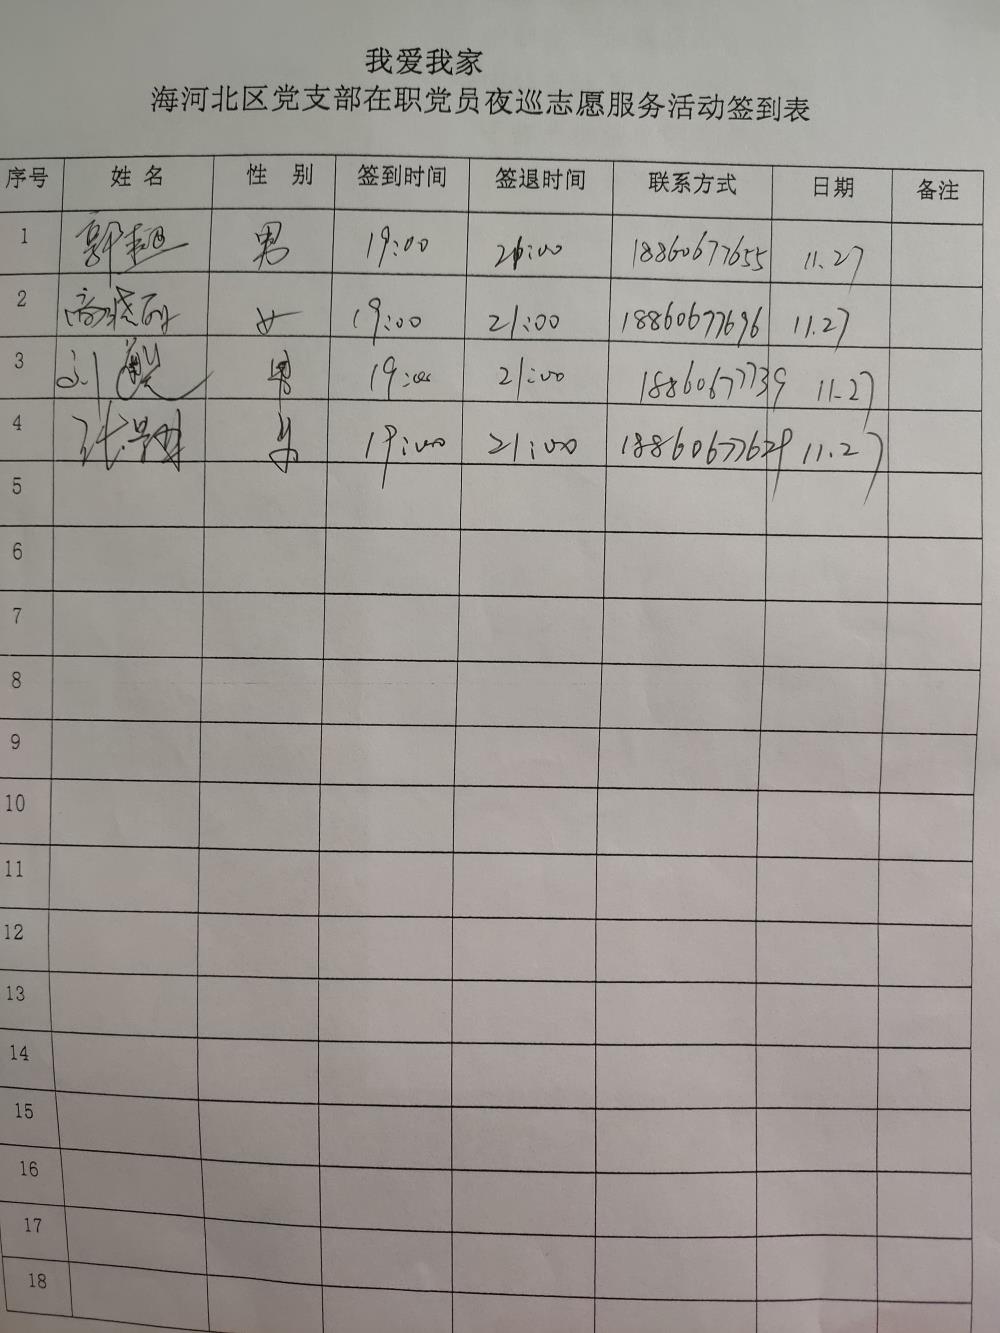 我爱我家
海河北区党支部在职党员夜巡志愿服务活动签到表
序号 姓 名 性 别 签到时间 签退时间 联系方式 日期 备注
1 郭超 男 19:00 21:00 18860677655 11.27
2 女 19:00 21:00 18860677696 11.27
3 刘 男 19:00 21:00 18860677739 11.27
4 张 男 19:00 21:00 18860677629 11.27
5
6
7
8
9
10
11
12
13
14
15
16
17
18